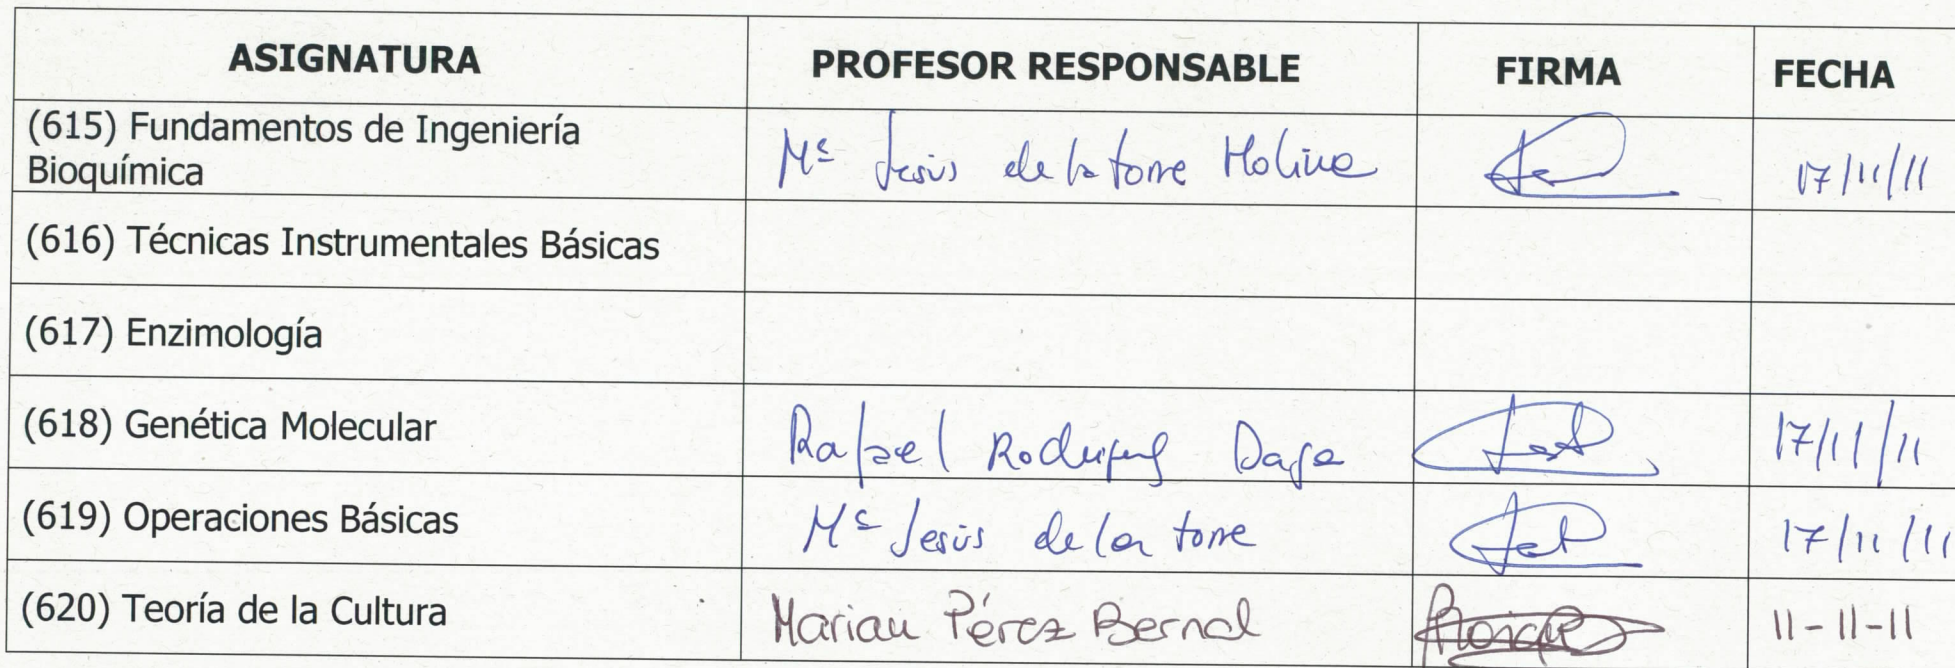 ASIGNATURA PROFESOR RESPONSABLE FIRMA FECHA
(615) Fundamentos de Ingeniería
Bioquímica
Mª Jesús de la torre Molina 17/11/11
(616) Técnicas Instrumentales Básicas
(617) Enzimología
(618) Genética Molecular Rafael Daga 17/11/11
(619) Operaciones Básicas Mª Jesús de la torre 17/11/11
(620) Teoría de la Cultura Marian Pérez Bernal 11-11-11